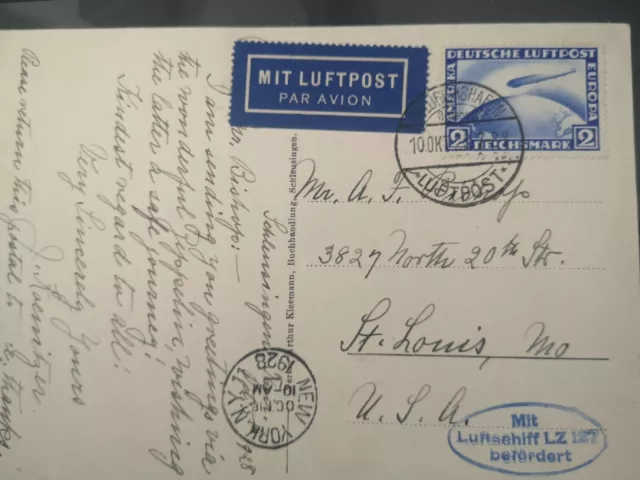 MIT LUFTPOST
PAR AVION
DEUTSCHE LUFTPOST
AMERIKA
EUROPA
2 REICHSMARK 2
FRIEDRICHSHAFEN
10.OKT
LUFTPOST
Mr. A. F. Bishop
3827 North 20th Str.
St. Louis, Mo
U. S. A.
Mit
Luftschiff LZ 127
befördert
NEW YORK N.Y.
OCT 16
10 AM
1928
Arthur Kleemann, Buchhandlung, Schleusingen.
Schleusingen
Bishop:—
I am sending you greetings via
the wonderful Zeppelin, wishing
the latter a safe journey!
Kindest regard to all!
Very Sincerely Yours
Please return this postal to
thanks